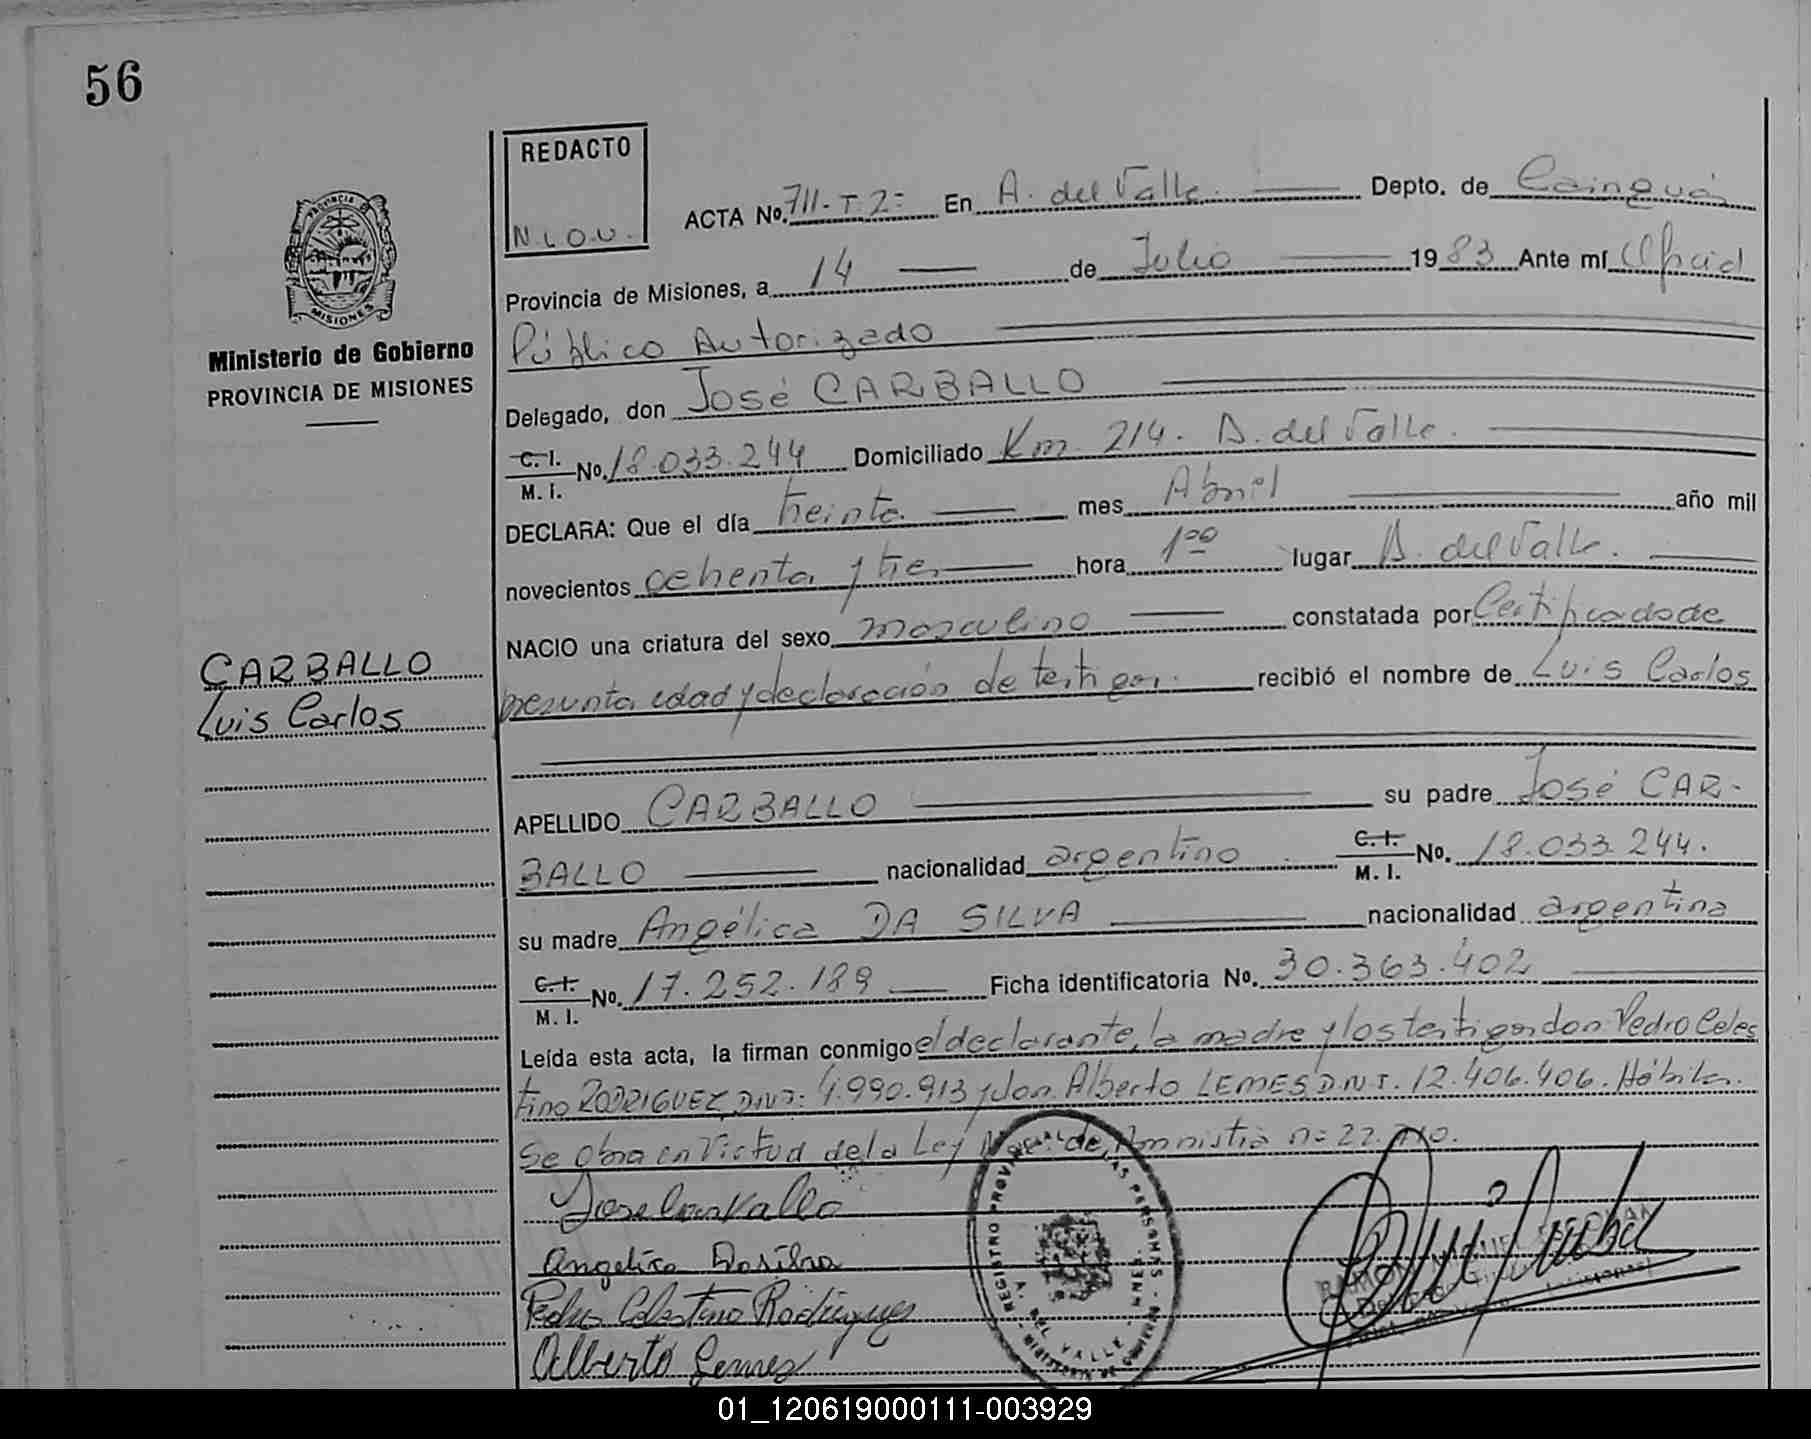 56
REDACTO
N.L.O.U.
ACTA No. 711-T 2= En A. del Valle. Depto. de Cainguás
Provincia de Misiones, a 14 de Julio 1983 Ante mí Oficial
Público Autorizado
Delegado, don José CARBALLO
C. I. M. I. No. 18.033.244 Domiciliado Km. 214. A. del Valle.
DECLARA: Que el día treinta mes Abril año mil
novecientos ochenta y tres hora 1:00 lugar A. del Valle.
NACIO una criatura del sexo masculino constatada por Certificado de
presunta edad y declaración de testigos. recibió el nombre de Luis Carlos
APELLIDO CARBALLO su padre José CAR-
BALLO nacionalidad argentino C. I. M. I. No. 18.033.244.
su madre Angélica DA SILVA nacionalidad argentina
C. I. M. I. No. 17.252.189 Ficha identificatoria No. 30.363.402
Leída esta acta, la firman conmigo el declarante, la madre y los testigos don Pedro Celes
tino RODRIGUEZ D.N.I: 4.990.913 y don Alberto LEMES D.N.I. 12.406.406. Hábiles.
Se obra en Virtud de la Ley de Amnistía nº 22.
Jose Carvallo
Angelica Dasilva
Pedro Celestino Rodriguez
Alberto Lemes
REGISTRO PROVINCIAL DE LAS PERSONAS - MISIONES
A. DEL VALLE
PROVINCIA DE
MISIONES
Ministerio de Gobierno
PROVINCIA DE MISIONES
CARBALLO
Luis Carlos
01_120619000111-003929